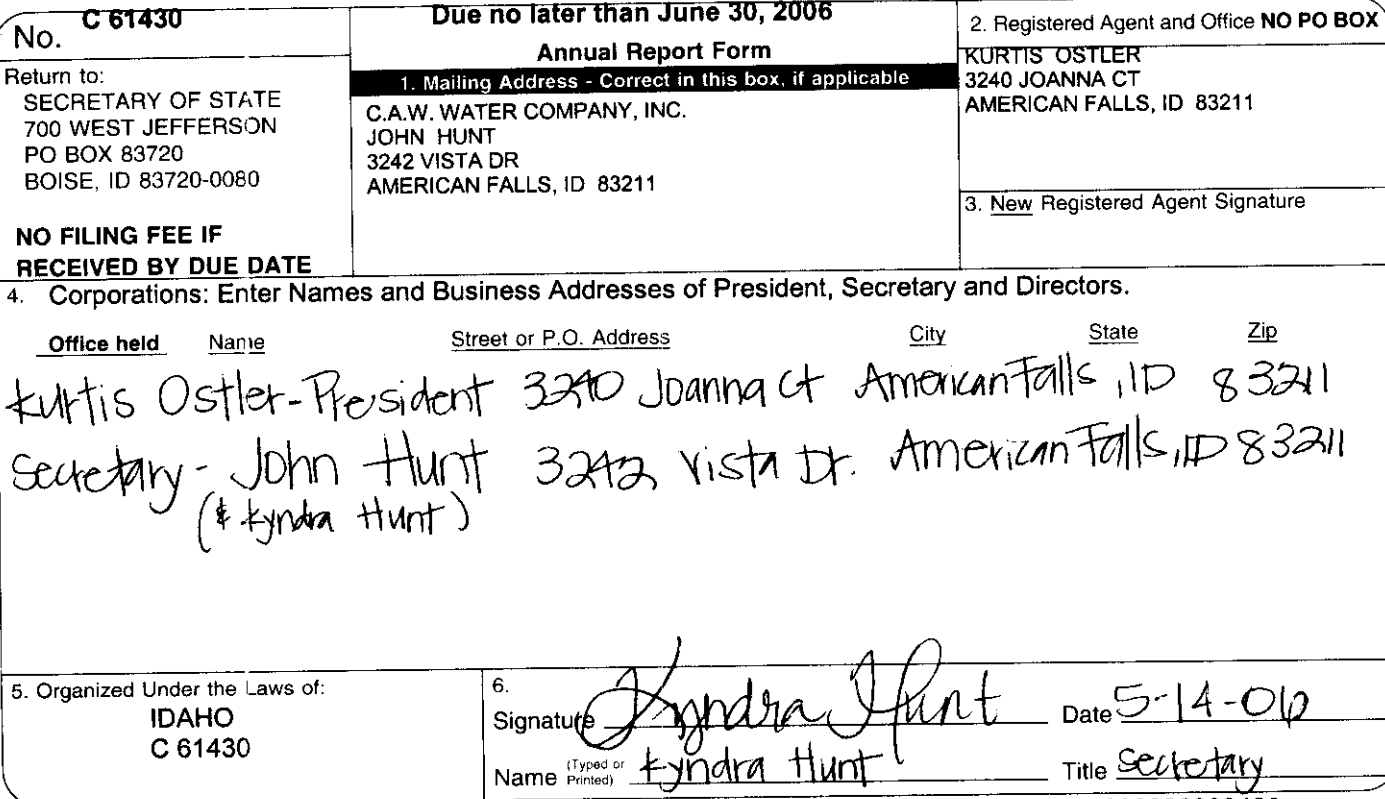 No. C 61430
Return to:
SECRETARY OF STATE
700 WEST JEFFERSON
PO BOX 83720
BOISE, ID 83720-0080
NO FILING FEE IF
RECEIVED BY DUE DATE
Due no later than June 30, 2006
Annual Report Form
1. Mailing Address - Correct in this box, if applicable
C.A.W. WATER COMPANY, INC.
JOHN HUNT
3242 VISTA DR
AMERICAN FALLS, ID 83211
2. Registered Agent and Office NO PO BOX
KURTIS OSTLER
3240 JOANNA CT
AMERICAN FALLS, ID 83211
3. New Registered Agent Signature
4. Corporations: Enter Names and Business Addresses of President, Secretary and Directors.
Office held Name Street or P.O. Address City State Zip
Kurtis Ostler-President 3240 Joanna Ct American Falls, ID 83211
Secretary - John Hunt 3242 Vista Dr. American Falls, ID 83211
(& Kyndra Hunt)
5. Organized Under the Laws of:
IDAHO
C 61430
6.
Signature Kyndra Hunt Date 5-14-06
Name (Typed or Printed) Kyndra Hunt Title Secretary